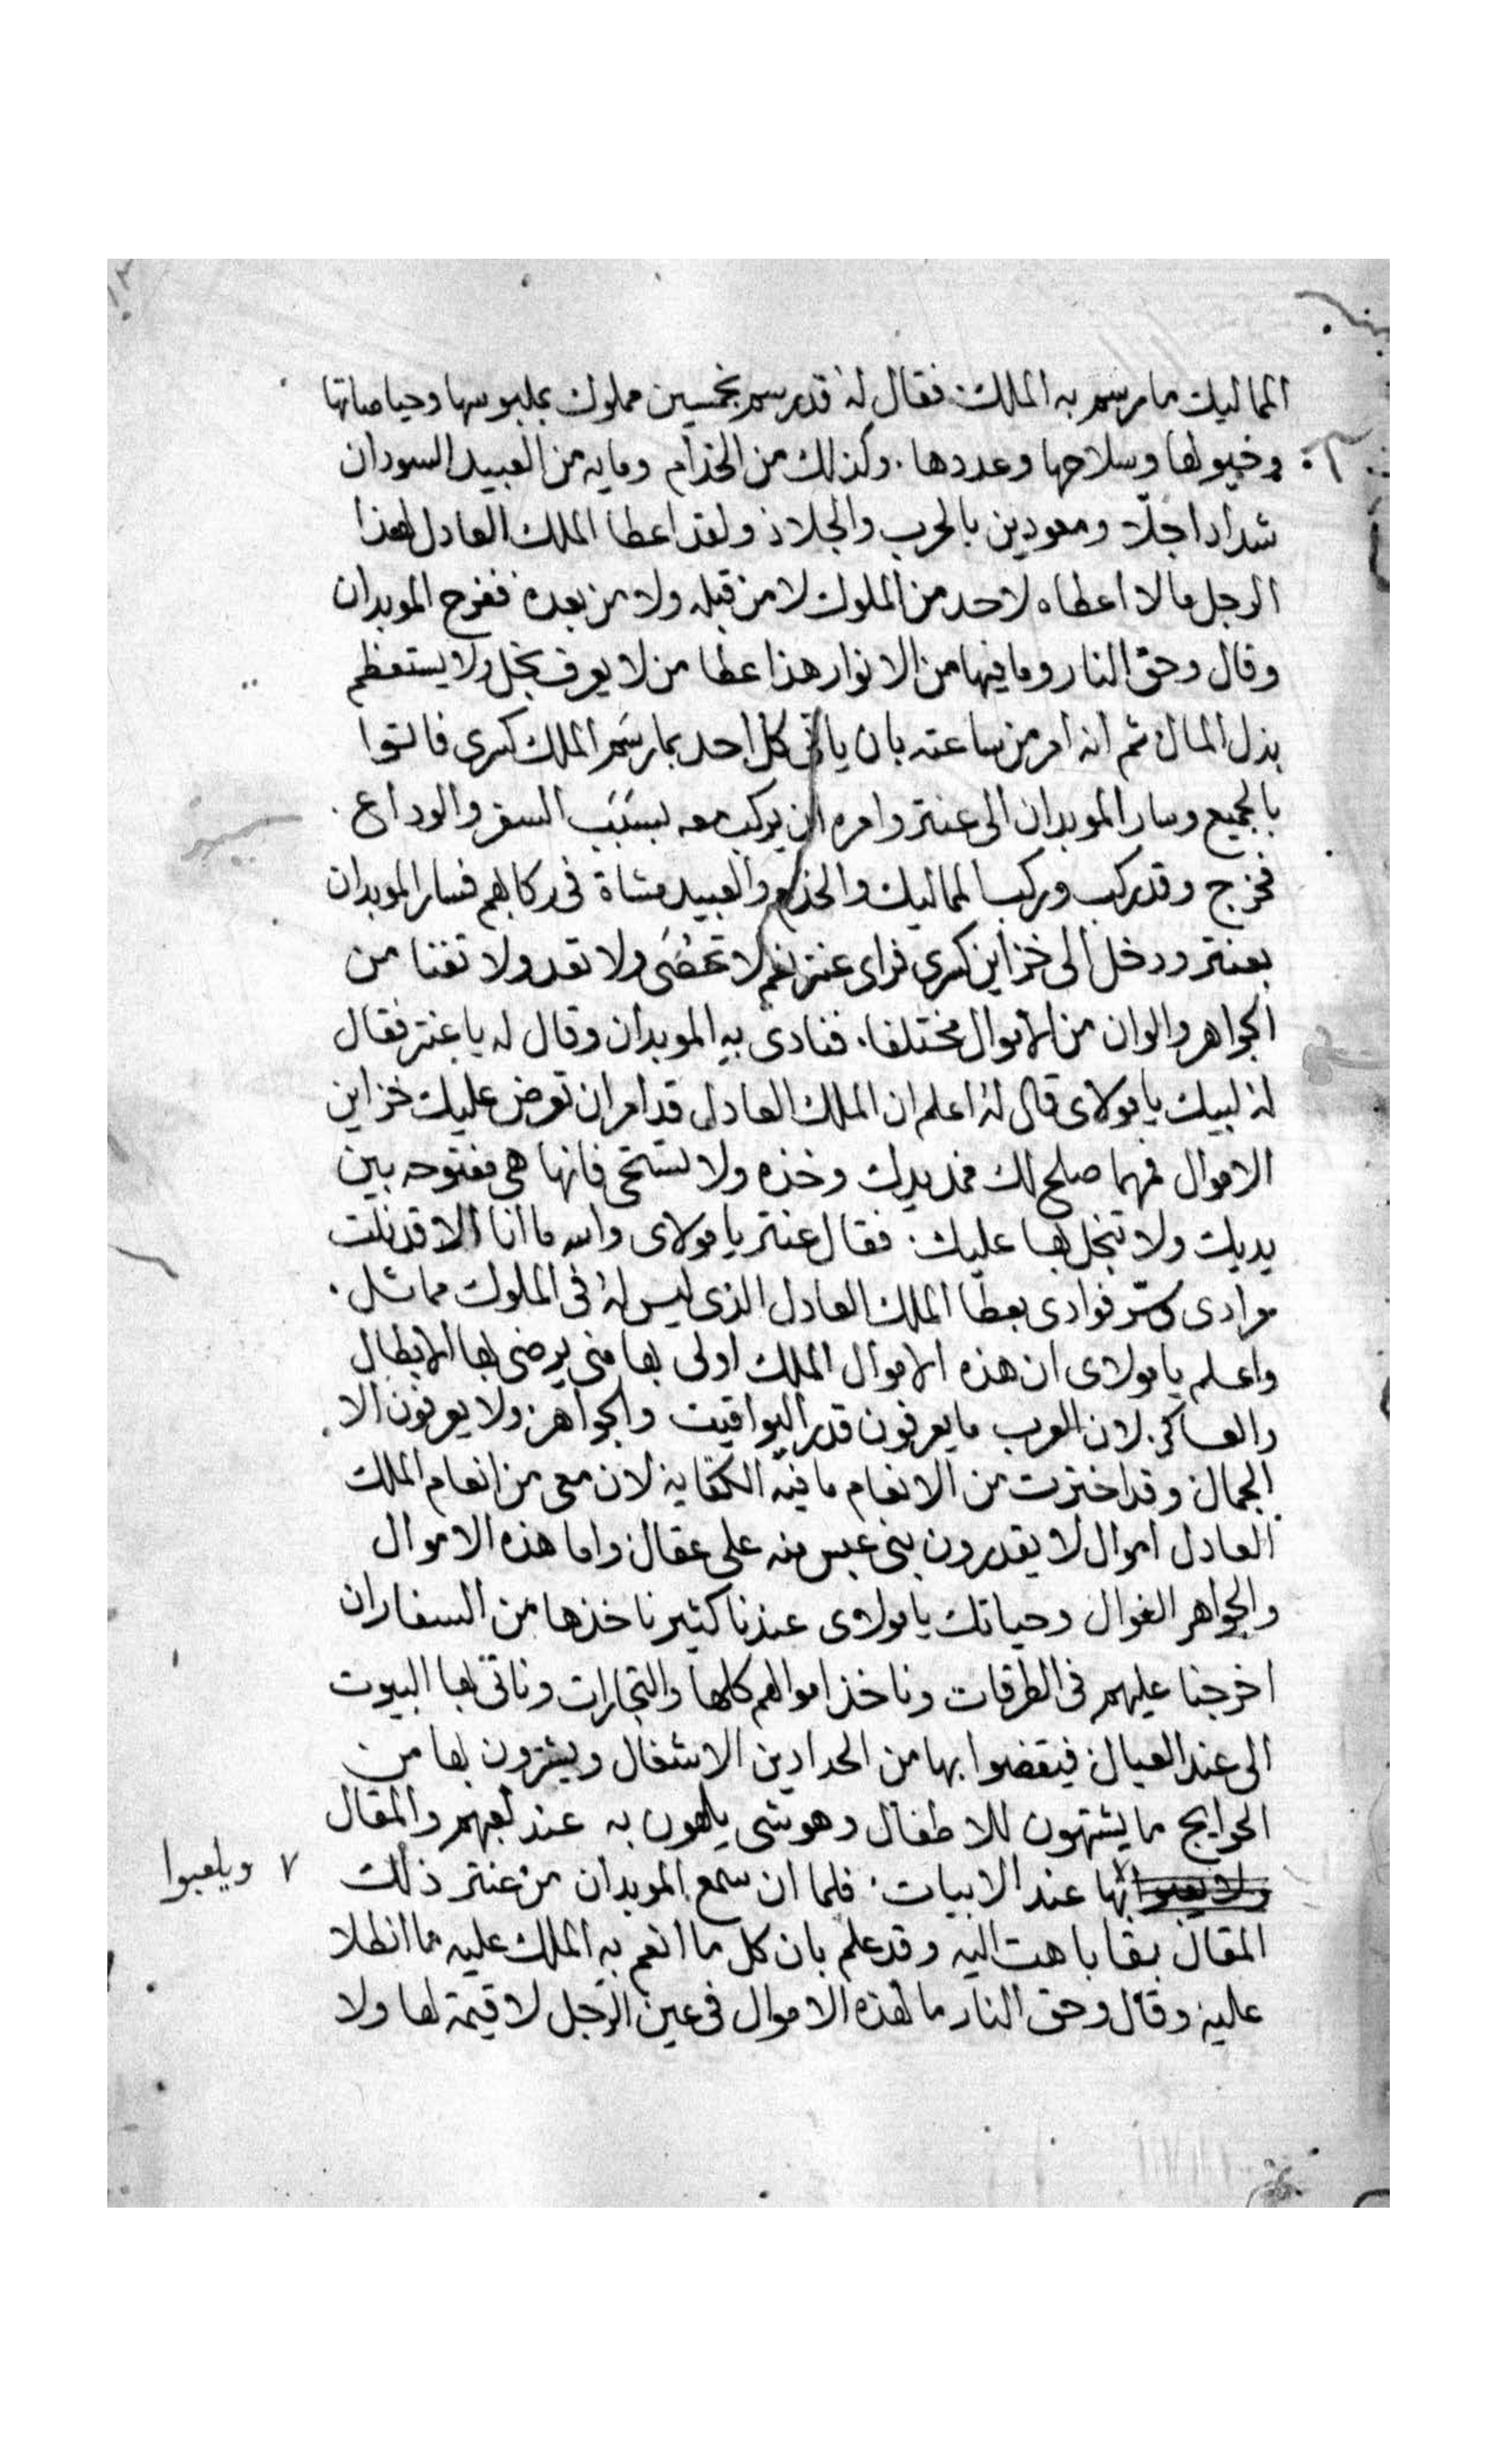 المماليك ما رسم به الملك. فقال له قد رسم بخمسين مملوك بملبوسها وحياصاتها
وخيولها وسلاحها وعددها. وكذلك من الخدام ومايه من العبيد السودان
شداد اجلا ومعودين بالحرب والجلاد ولقد اعطا الملك العادل لهذا
الرجل ما لا اعطاه لاحد من الملوك لا من قبله ولا من بعده ففرح الموبدان
وقال وحق النار وما فيها من الانوار هذا عطا من لا يعرف بخل ولا يستعظم
بذل المال ثم انه امر من ساعته بان ياتى كل احد بما رسم الملك كسرى فاتوا
بالجميع وسار الموبدان الى عنتر وامره ان يركب معه بسبب السفر والوداع.
فخرج وقد ركب وركب المماليك والخدام والعبيد مشاة فى ركابهم فسار الموبدان
بعنتر ودخل الى خزاين كسرى فراى عنتر نعم لا تحصى ولا تعد ولا تفنا من
الجواهر والوان من الاموال مختلفا. فنادى به الموبدان وقال له يا عنتر فقال
له لبيك يا مولاى قال له اعلم ان الملك العادل قد امر ان تعرض عليك خزاين
الاموال فمهما صلح لك فمد يدك وخذه ولا تستحى فانها هى مفتوحه بين
يديك ولا نبخل بها عليك. فقال عنتر يا مولاى والله ما انا الا قد نلت
مرادى وسر فوادى بعطا الملك العادل الذى ليس له فى الملوك مماثل.
واعلم يا مولاى ان هذه الاموال الملك اولى بها منى يرضى بها الابطال
والعساكر. لان العرب ما يعرفون قدر اليواقيت والجواهر ولا يعرفون الا
الجمال وقد اخترت من الانعام ما فيه الكفاية لان معى من انعام الملك
العادل اموال لا يقدرون بنى عبس منه على عقال واما هذه الاموال
والجواهر الغوال وحياتك يا مولاى عندنا كثير ناخذها من السفار ان
اخرجنا عليهم فى الطرقات وناخذ اموالهم كلها والتجارات وناتى بها البيوت
الى عند العيال فيقضوا بها من الحدادين الاشغال ويشترون بها من
الحوايج ما يشتهون للاطفال وهو شى يلهون به عند لعبهم والمقال
بها عند الابيات. فلما ان سمع الموبدان من عنتر ذلك ٧ ويلعبوا
المقال بقا باهت اليه وقد علم بان كل ما انعم به الملك عليه ما انطلا
عليه وقال وحق النار ما لهذه الاموال فى عين الرجل لا قيمة لها ولا